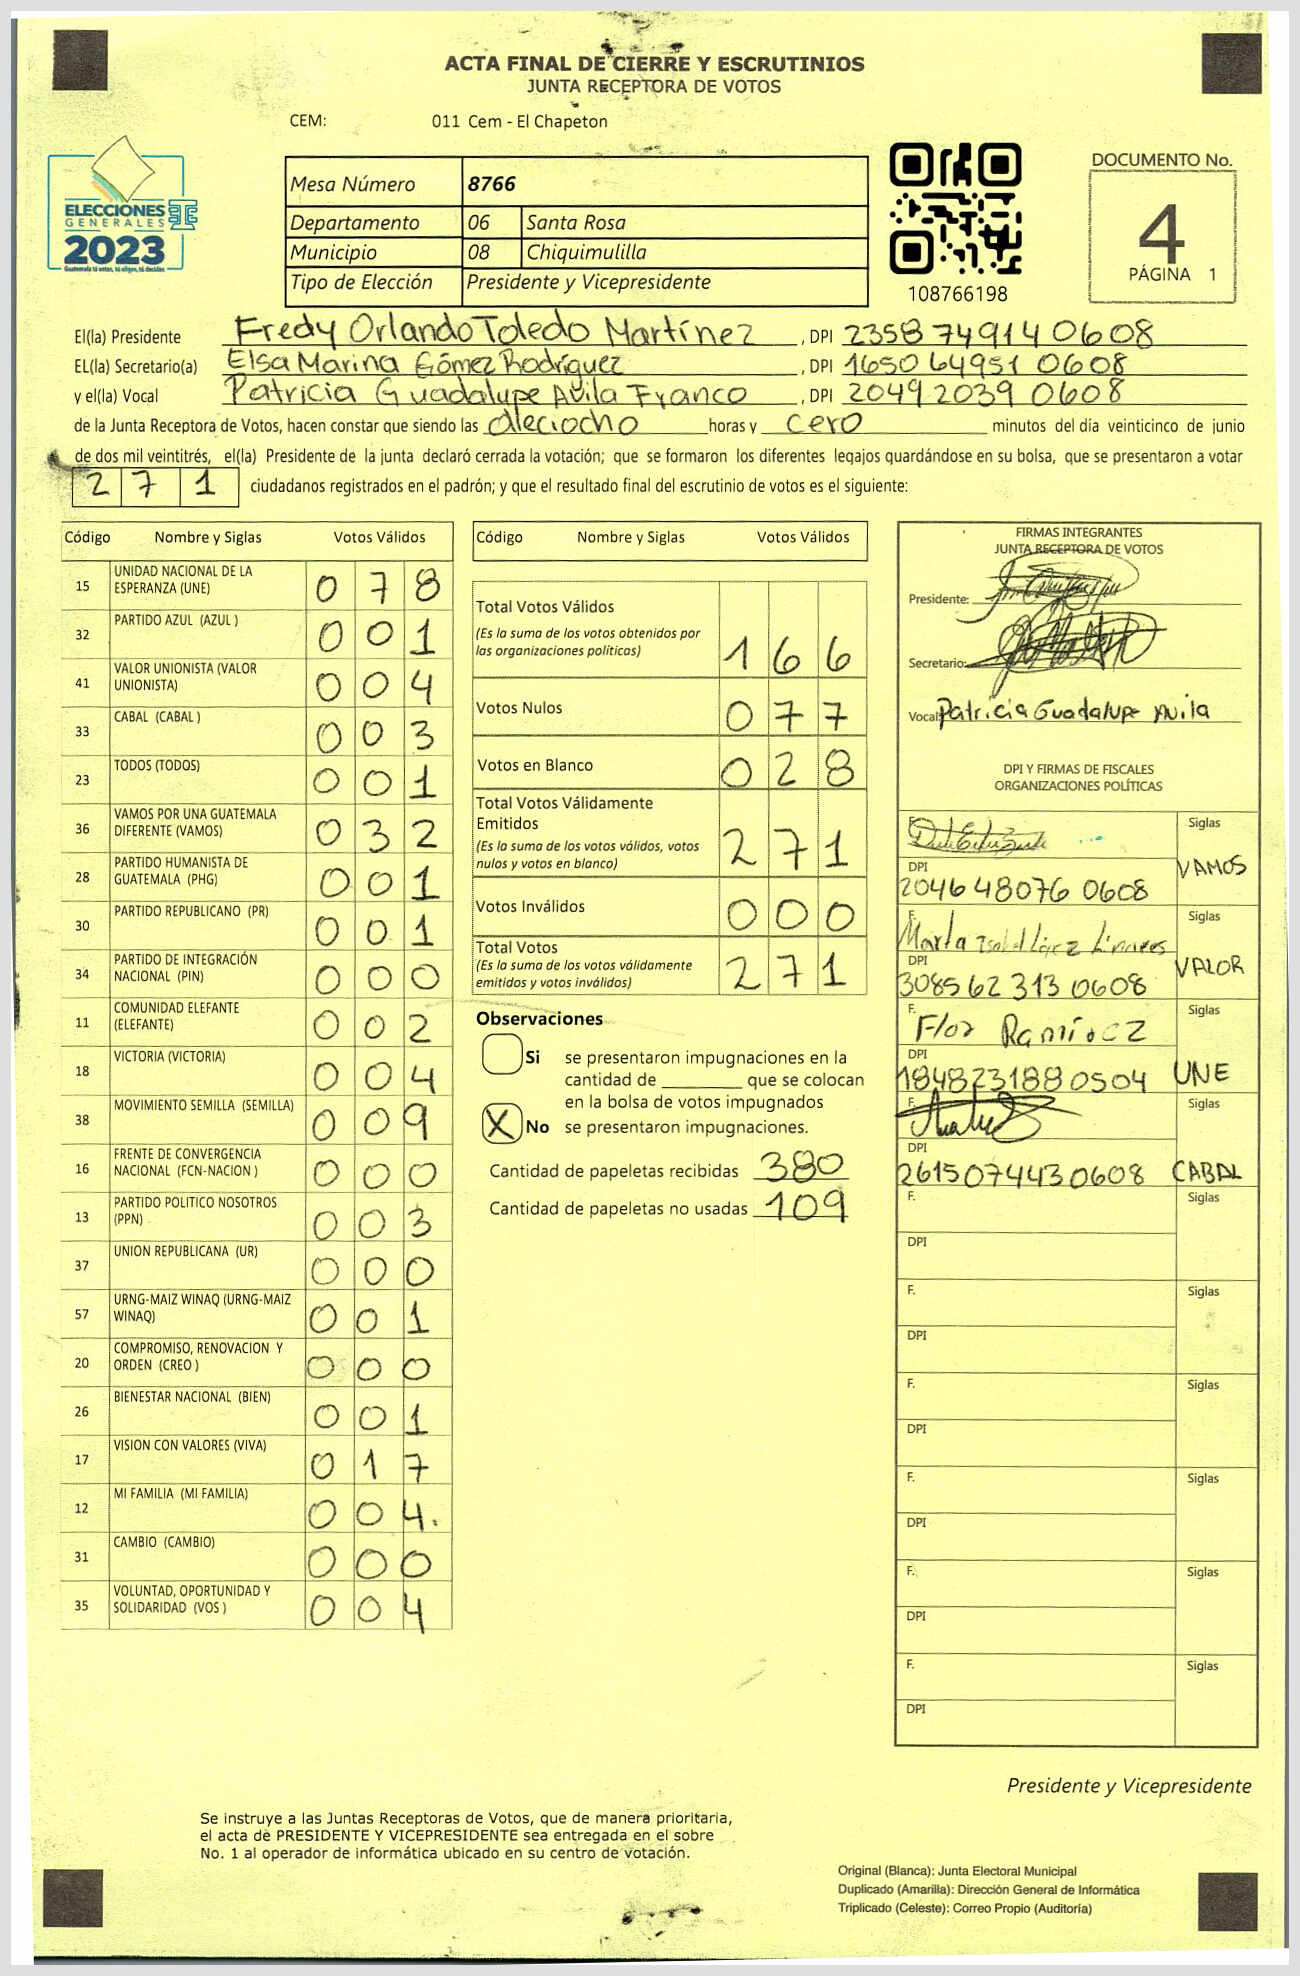 ACTA FINAL DE CIERRE Y ESCRUTINIOS
JUNTA RECEPTORA DE VOTOS
CEM: 011 Cem - El Chapeton
ELECCIONES
GENERALES
2023
Guatemala tú votas, tú eliges, tú decides
Mesa Número 8766
Departamento 06 Santa Rosa
Municipio 08 Chiquimulilla
Tipo de Elección Presidente y Vicepresidente
108766198
DOCUMENTO No.
4
PÁGINA 1
El(la) Presidente Fredy Orlando Toledo Martínez , DPI 2358 74914 0608
EL(la) Secretario(a) Elsa Marina Gómez Rodríguez , DPI 1650 64951 0608
y el(la) Vocal Patricia Guadalupe Avila Franco , DPI 2049 2039 0608
de la Junta Receptora de Votos, hacen constar que siendo las dieciocho horas y cero minutos del día veinticinco de junio
de dos mil veintitrés, el(la) Presidente de la junta declaró cerrada la votación; que se formaron los diferentes legajos quardándose en su bolsa, que se presentaron a votar
2 7 1 ciudadanos registrados en el padrón; y que el resultado final del escrutinio de votos es el siguiente:
Código Nombre y Siglas Votos Válidos
15 UNIDAD NACIONAL DE LA ESPERANZA (UNE) 0 7 8
32 PARTIDO AZUL (AZUL ) 0 0 1
41 VALOR UNIONISTA (VALOR UNIONISTA) 0 0 4
33 CABAL (CABAL ) 0 0 3
23 TODOS (TODOS) 0 0 1
36 VAMOS POR UNA GUATEMALA DIFERENTE (VAMOS) 0 3 2
28 PARTIDO HUMANISTA DE GUATEMALA (PHG) 0 0 1
30 PARTIDO REPUBLICANO (PR) 0 0 1
34 PARTIDO DE INTEGRACIÓN NACIONAL (PIN) 0 0 0
11 COMUNIDAD ELEFANTE (ELEFANTE) 0 0 2
18 VICTORIA (VICTORIA) 0 0 4
38 MOVIMIENTO SEMILLA (SEMILLA) 0 0 9
16 FRENTE DE CONVERGENCIA NACIONAL (FCN-NACION ) 0 0 0
13 PARTIDO POLITICO NOSOTROS (PPN) 0 0 3
37 UNION REPUBLICANA (UR) 0 0 0
57 URNG-MAIZ WINAQ (URNG-MAIZ WINAQ) 0 0 1
20 COMPROMISO, RENOVACION Y ORDEN (CREO ) 0 0 0
26 BIENESTAR NACIONAL (BIEN) 0 0 1
17 VISION CON VALORES (VIVA) 0 1 7
12 MI FAMILIA (MI FAMILIA) 0 0 4.
31 CAMBIO (CAMBIO) 0 0 0
35 VOLUNTAD, OPORTUNIDAD Y SOLIDARIDAD (VOS ) 0 0 4
Código Nombre y Siglas Votos Válidos
Total Votos Válidos
(Es la suma de los votos obtenidos por
las organizaciones políticas) 1 6 6
Votos Nulos 0 7 7
Votos en Blanco 0 2 8
Total Votos Válidamente
Emitidos
(Es la suma de los votos válidos, votos
nulos y votos en blanco) 2 7 1
Votos Inválidos 0 0 0
Total Votos
(Es la suma de los votos válidamente
emitidos y votos inválidos) 2 7 1
Observaciones
Si se presentaron impugnaciones en la
cantidad de ________ que se colocan
en la bolsa de votos impugnados
X No se presentaron impugnaciones.
Cantidad de papeletas recibidas 380
Cantidad de papeletas no usadas 109
FIRMAS INTEGRANTES
JUNTA RECEPTORA DE VOTOS
Presidente:
Secretario:
Vocal: Patricia Guadalupe Avila
DPI Y FIRMAS DE FISCALES
ORGANIZACIONES POLÍTICAS
F. Siglas
DPI VAMOS
2046 48076 0608
F. Marta Isabel López Linares Siglas
DPI VALOR
3085 62 313 0608
F. Flor Ramírez Siglas
DPI
1848231880504 UNE
F. Siglas
DPI
2615074430608 CABAL
F. Siglas
DPI
F. Siglas
DPI
F. Siglas
DPI
F. Siglas
DPI
F. Siglas
DPI
F. Siglas
DPI
Presidente y Vicepresidente
Se instruye a las Juntas Receptoras de Votos, que de manera prioritaria,
el acta de PRESIDENTE Y VICEPRESIDENTE sea entregada en el sobre
No. 1 al operador de informática ubicado en su centro de votación.
Original (Blanca): Junta Electoral Municipal
Duplicado (Amarilla): Dirección General de Informática
Triplicado (Celeste): Correo Propio (Auditoría)